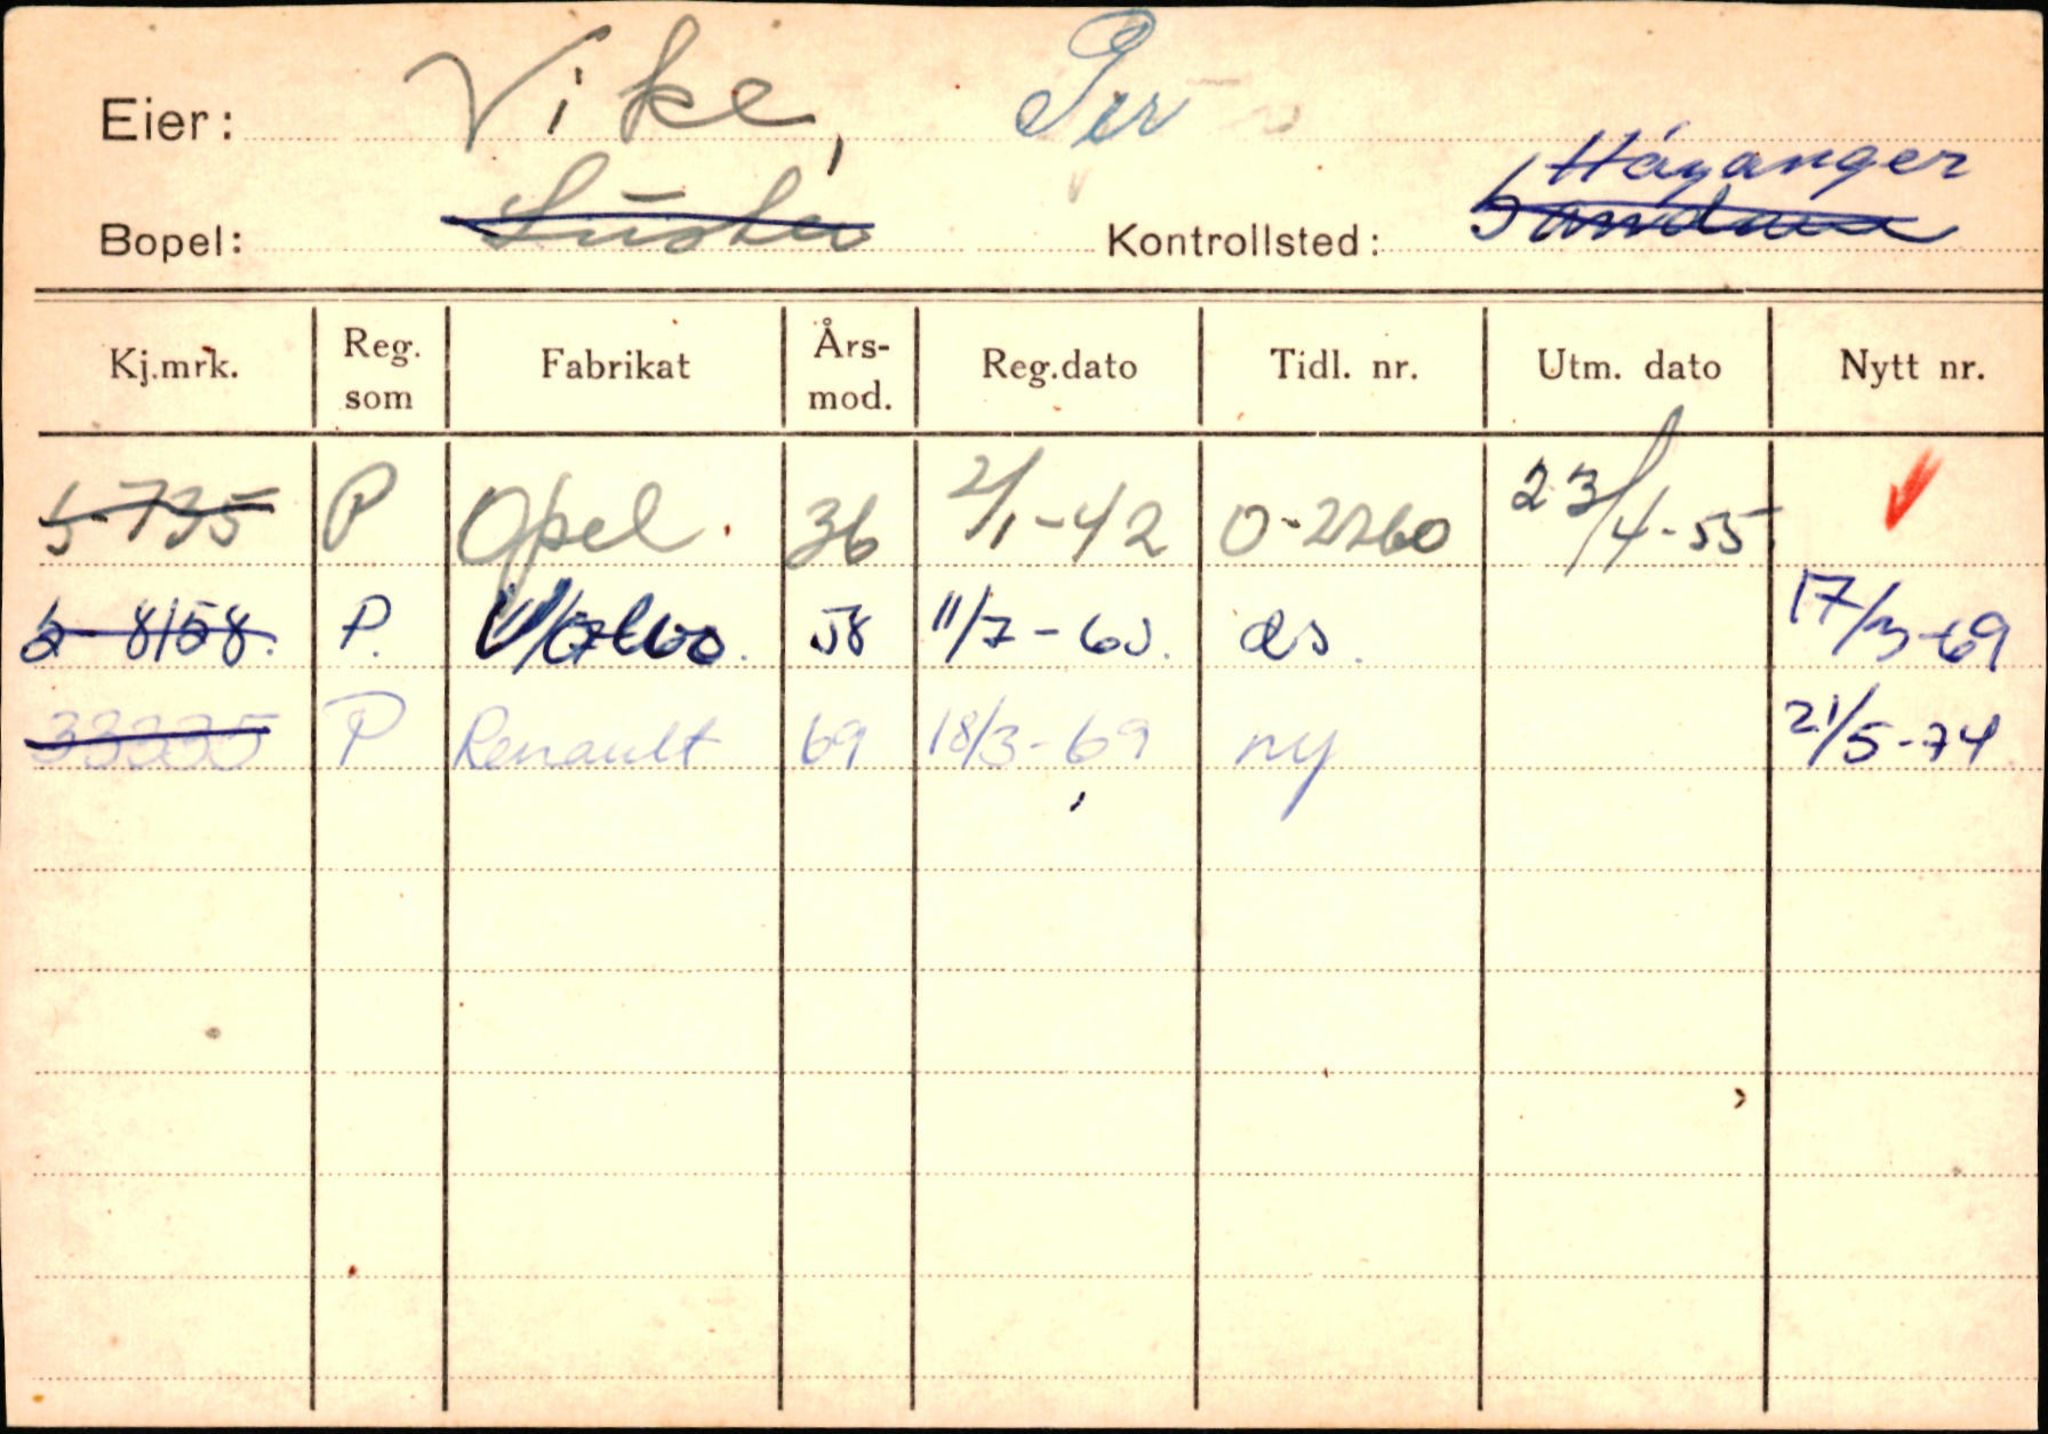 Eier: Vike, Per
Høyanger
Bopel: Luster Kontrollsted: Sandane
Kj.mrk. Reg. som Fabrikat Års-mod. Reg.dato Tidl. nr. Utm. dato Nytt nr.
S-735 P Opel 36 2/1-42 23/4-55
S-8158. P. Volvo. 58 11/7-60. ds.  17/3-69
P Renault 69 18/3-69 ny 21/5-74